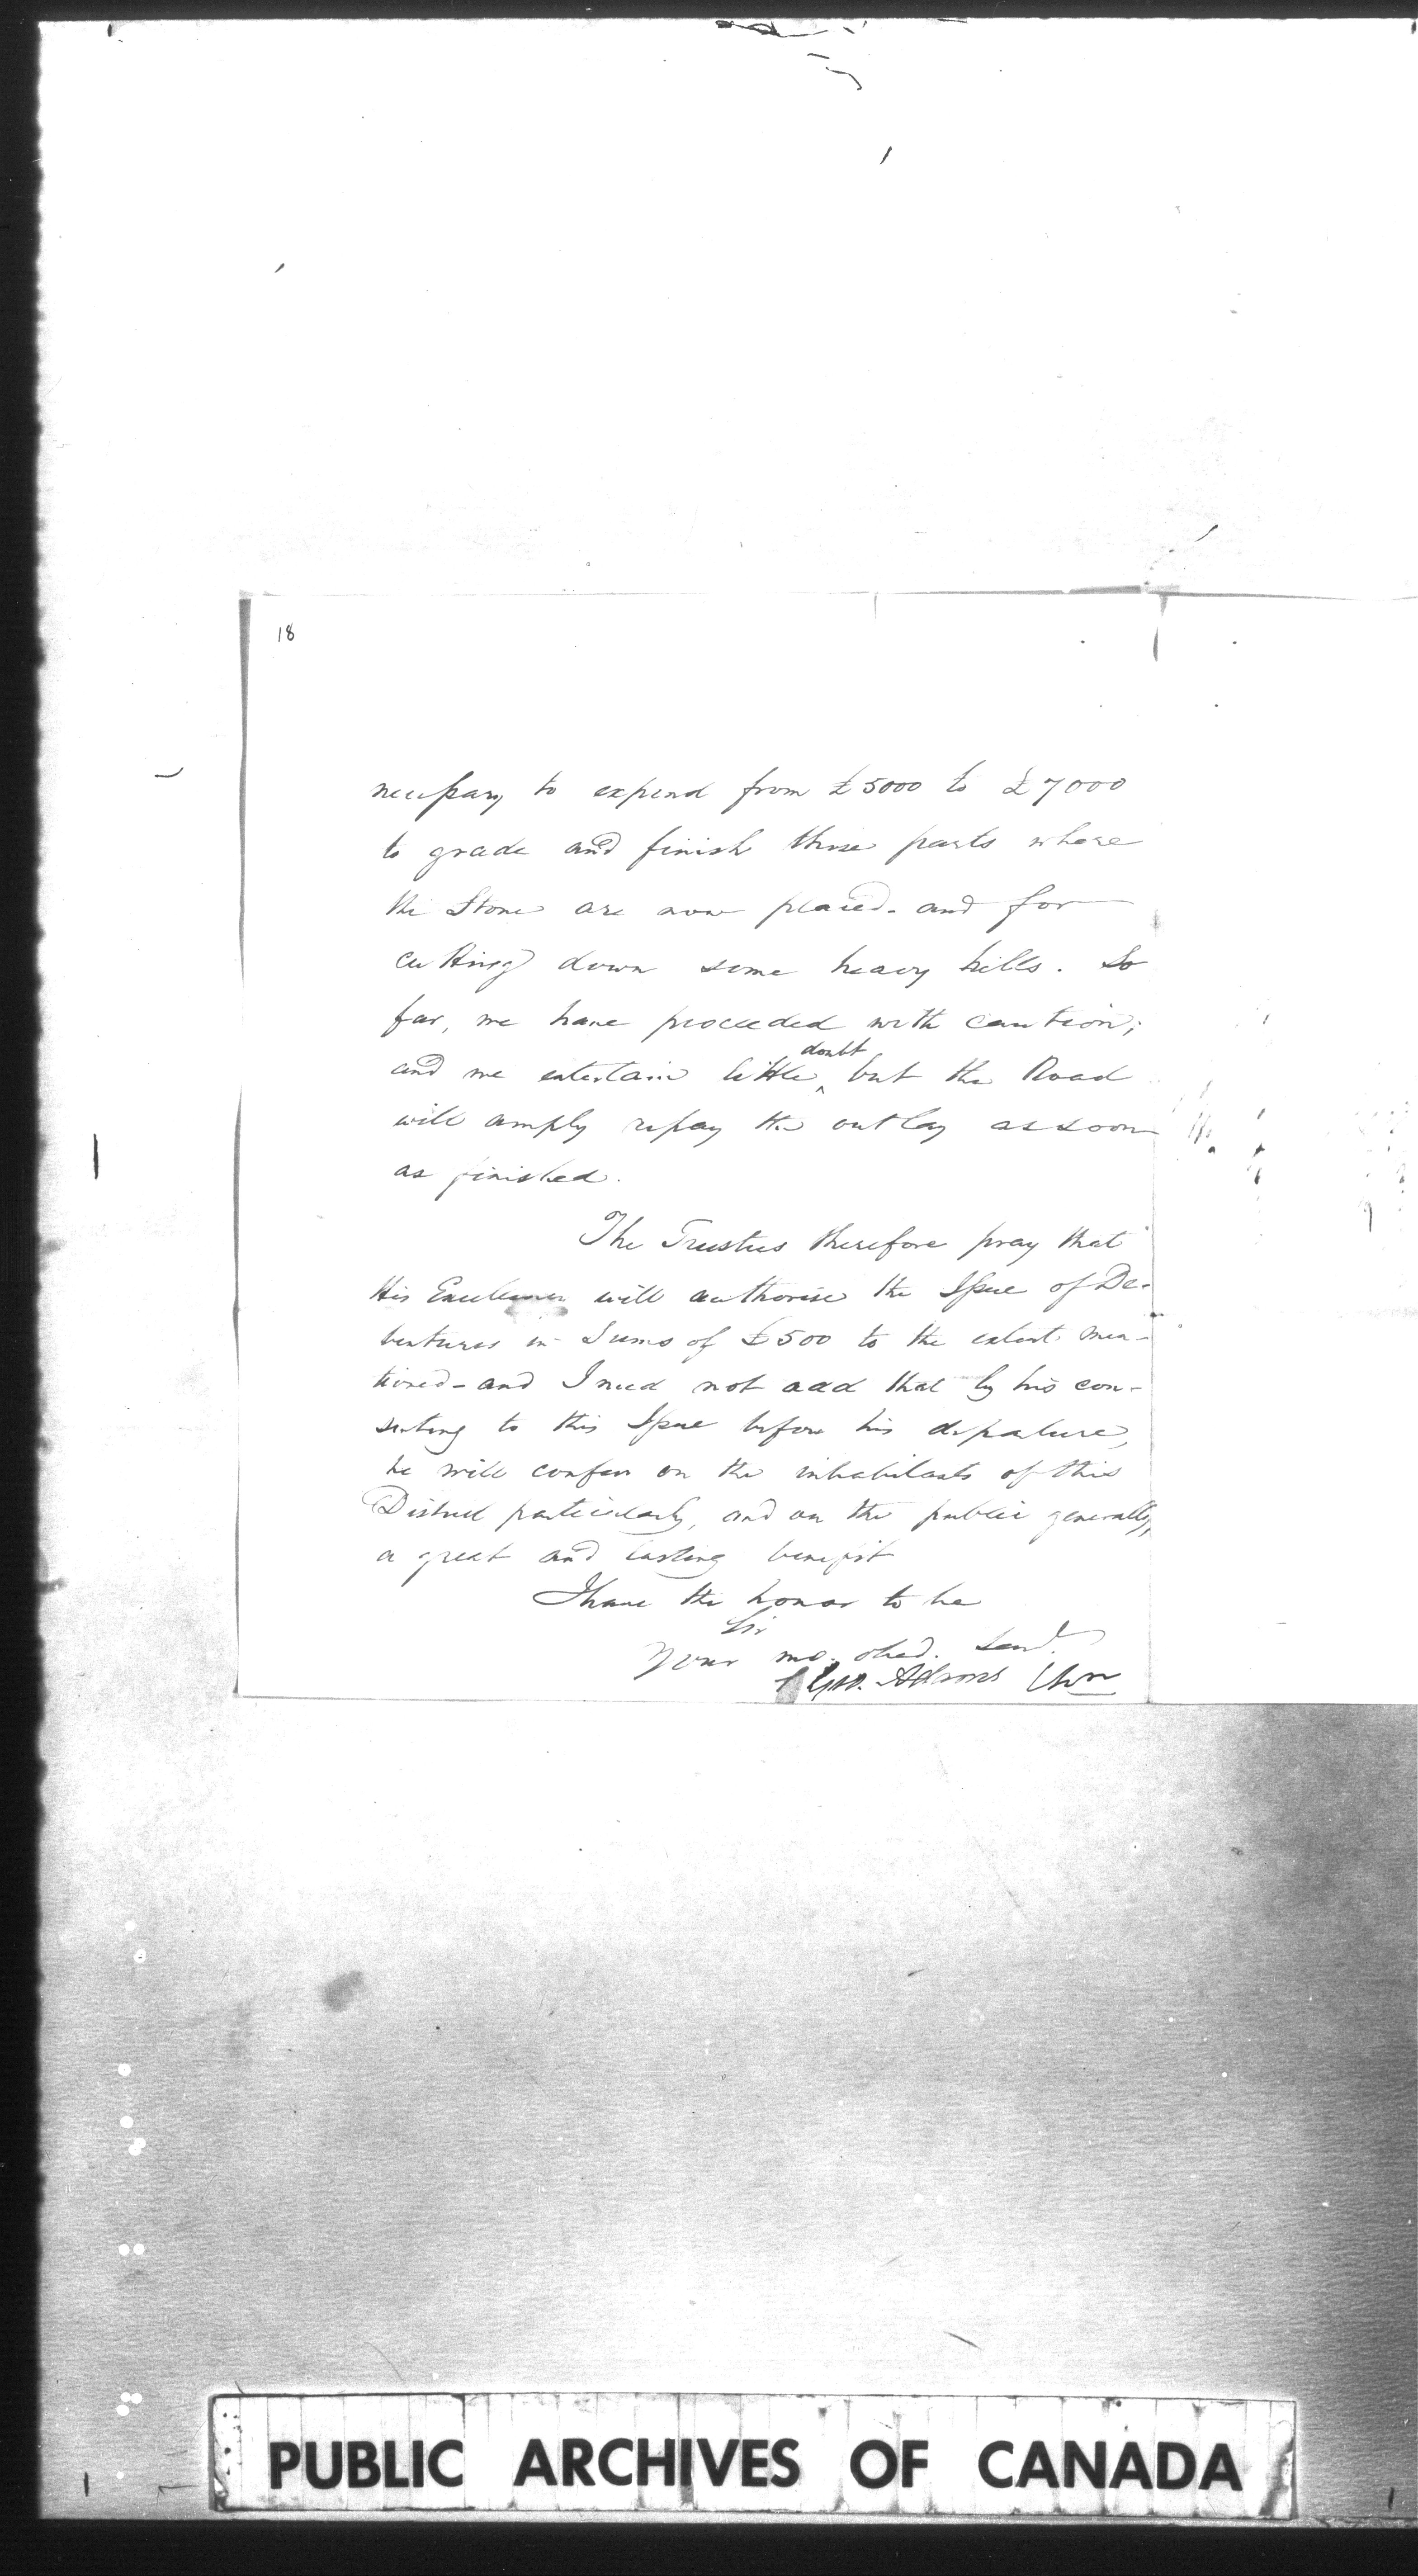 18
necessary to expend from £5000 to £7000
to grade and finish those parts where
the Stone are now placed - and for
cutting down some heavy hills. So
far, we have proceeded with caution;
and we entertain little doubt but the Road
will amply repay the outlay as soon
as finished.
The Trustees therefore pray that
His Excellency will authorise the Issue of De-
bentures in Sums of £500 to the extent men-
tioned - and I need not add that by his con-
senting to this Issue before his departure,
he will confer on the inhabitants of this
District particularly, and on the public generally,
a great and lasting benefit
I have the honor to be
Sir
Your mo. obed. Servt.
Geo. Adams Chn
PUBLIC ARCHIVES OF CANADA